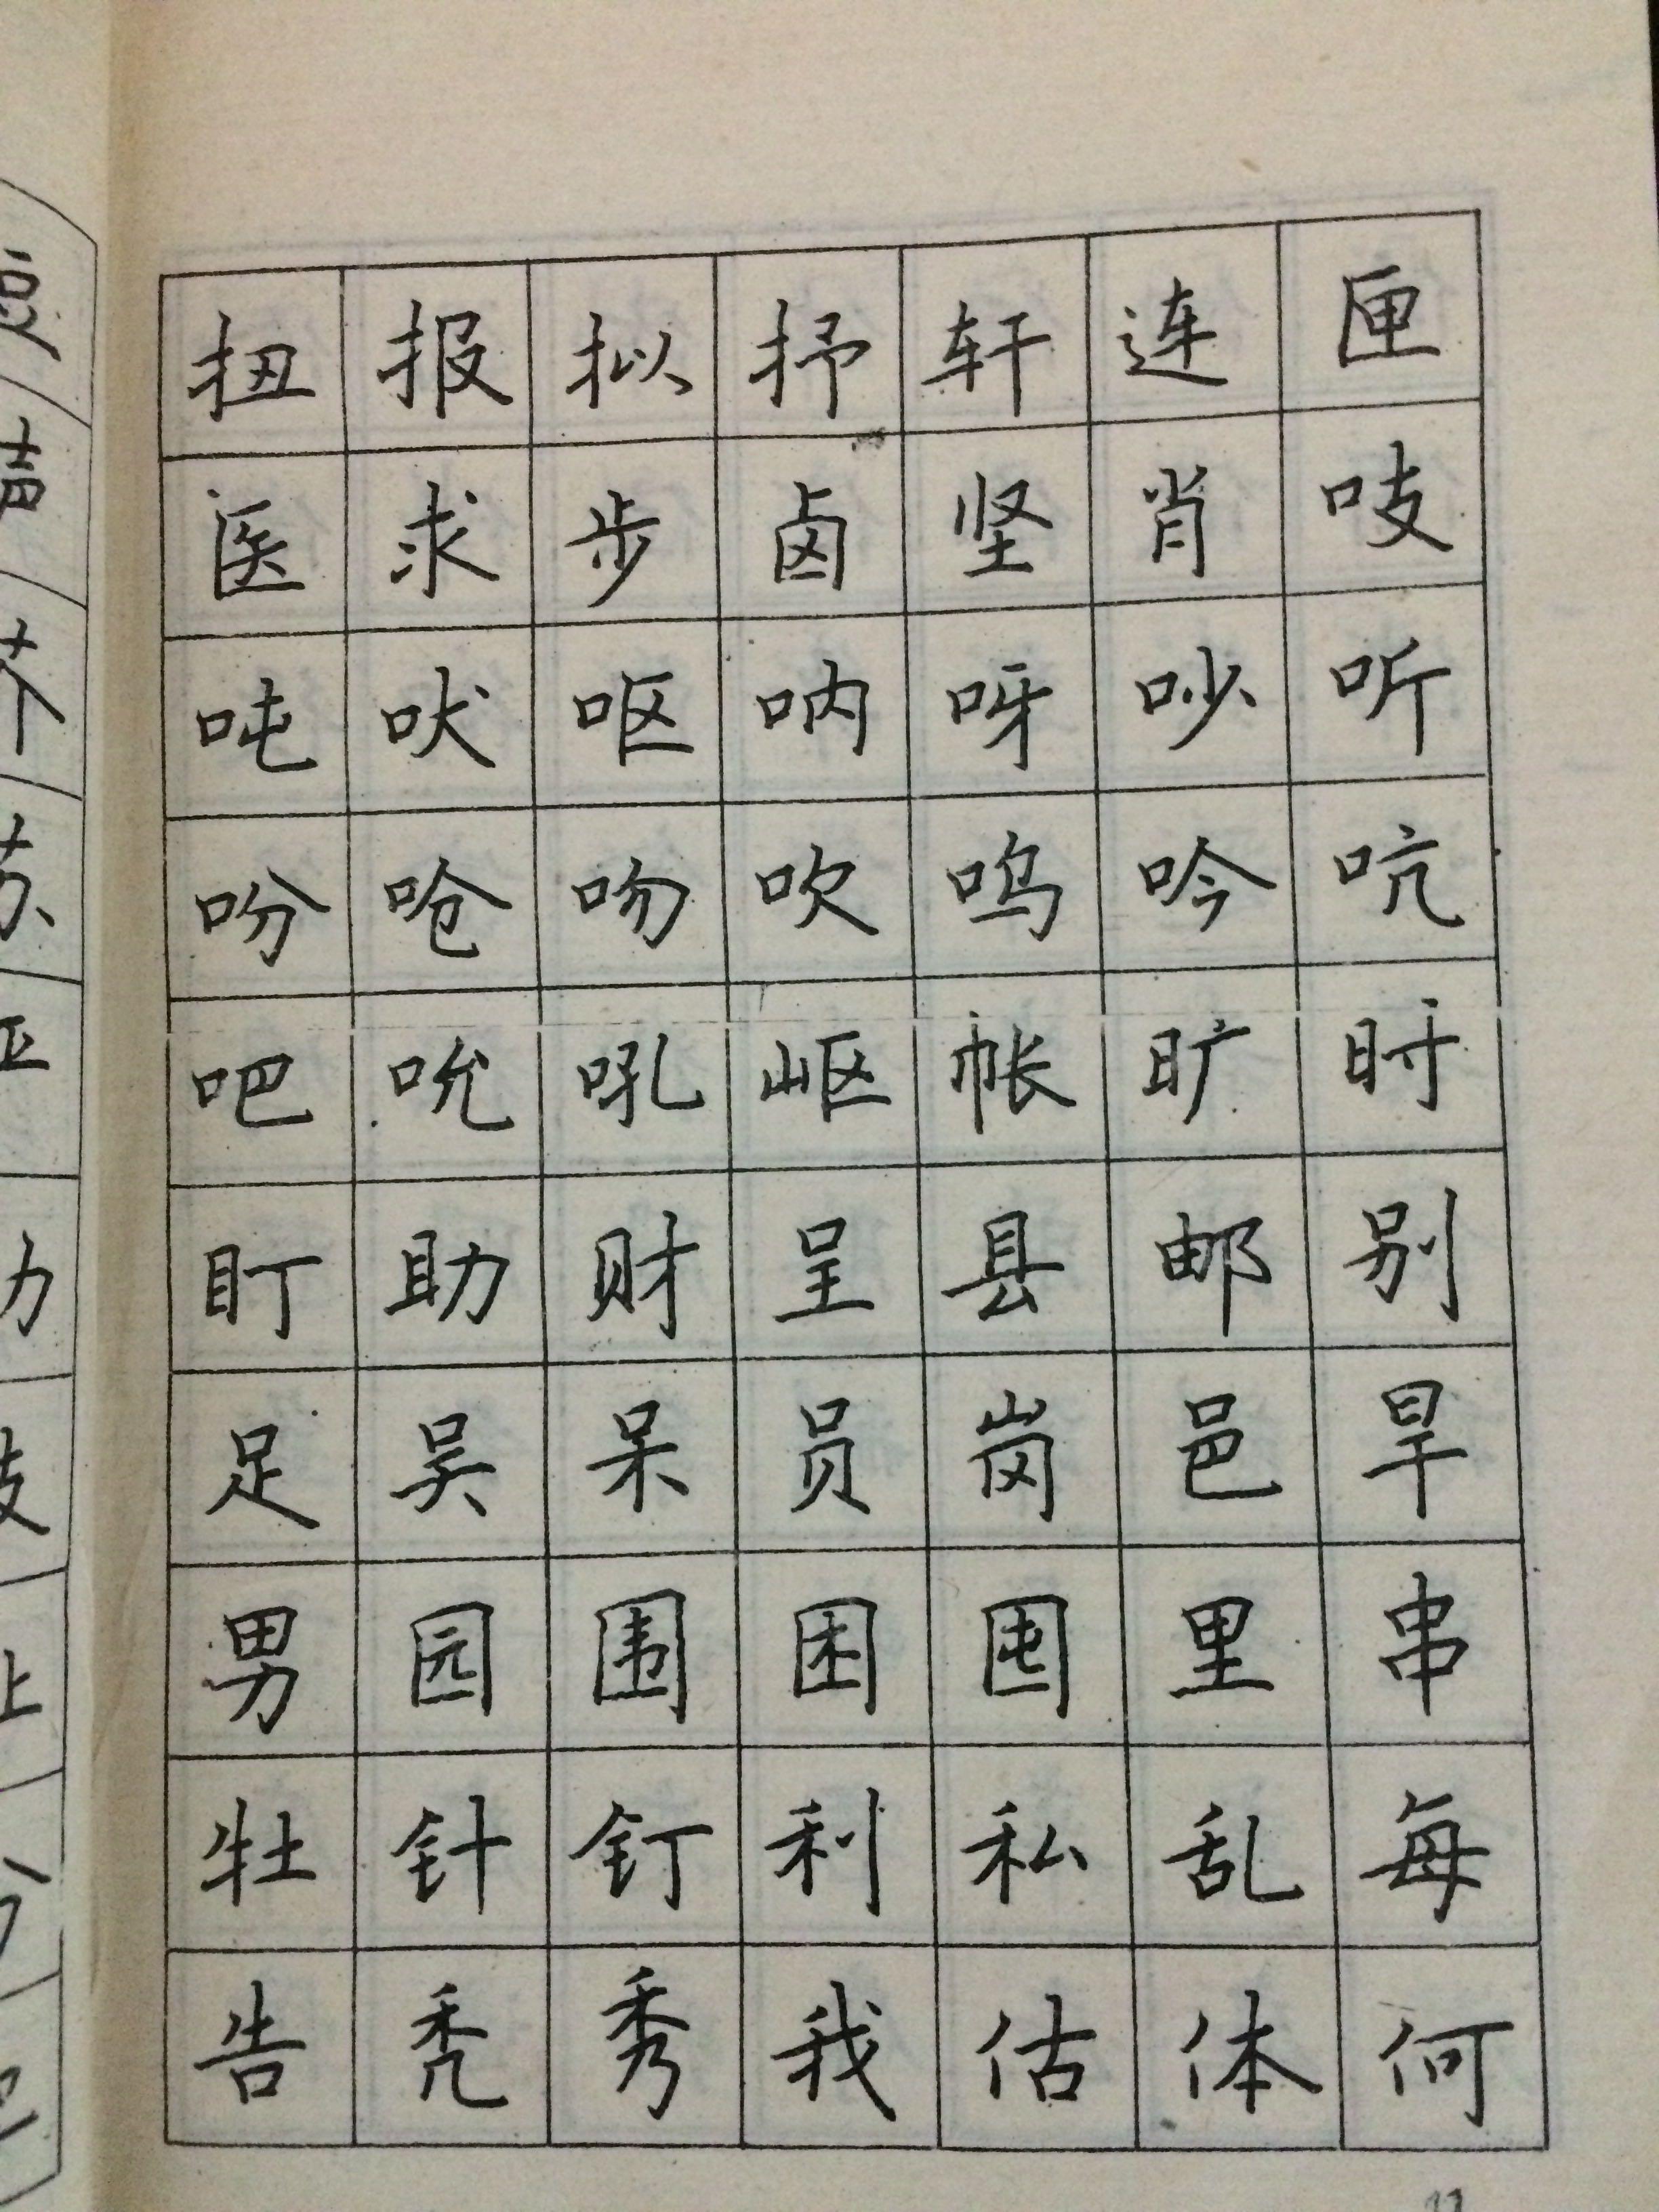 扭 报 拟 抒 轩 连 匣
医 求 步 卤 坚 肖 吱
吨 吠 呕 呐 呀 吵 听
吩 呛 吻 吹 呜 吟 吭
吧 吮 吼 岖 帐 旷 时
盯 助 财 呈 县 邮 别
足 吴 呆 员 岗 邑 旱
男 园 围 困 囤 里 串
牡 针 钉 利 私 乱 每
告 秃 秀 我 估 体 何